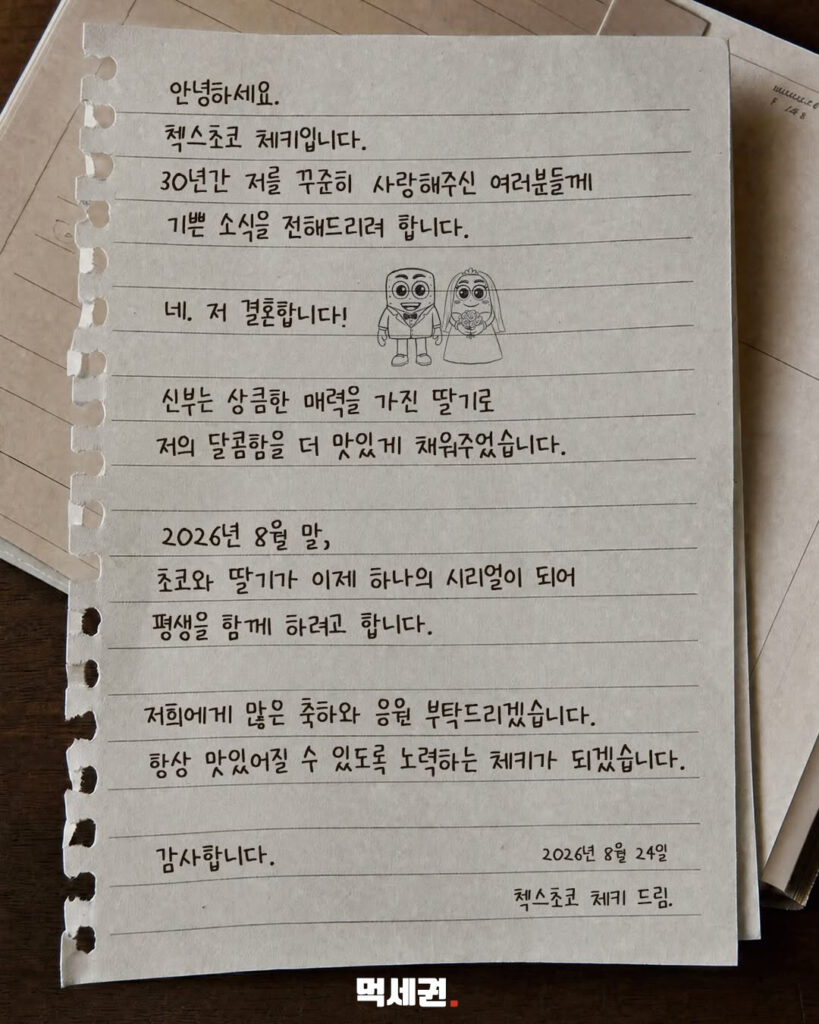 안녕하세요.
첵스초코 체키입니다.
30년간 저를 꾸준히 사랑해주신 여러분들께
기쁜 소식을 전해드리려 합니다.
네. 저 결혼합니다!
신부는 상큼한 매력을 가진 딸기로
저의 달콤함을 더 맛있게 채워주었습니다.
2026년 8월 말,
초코와 딸기가 이제 하나의 시리얼이 되어
평생을 함께 하려고 합니다.
저희에게 많은 축하와 응원 부탁드리겠습니다.
항상 맛있어질 수 있도록 노력하는 체키가 되겠습니다.
감사합니다.
2026년 8월 24일
첵스초코 체키 드림.
먹세권.